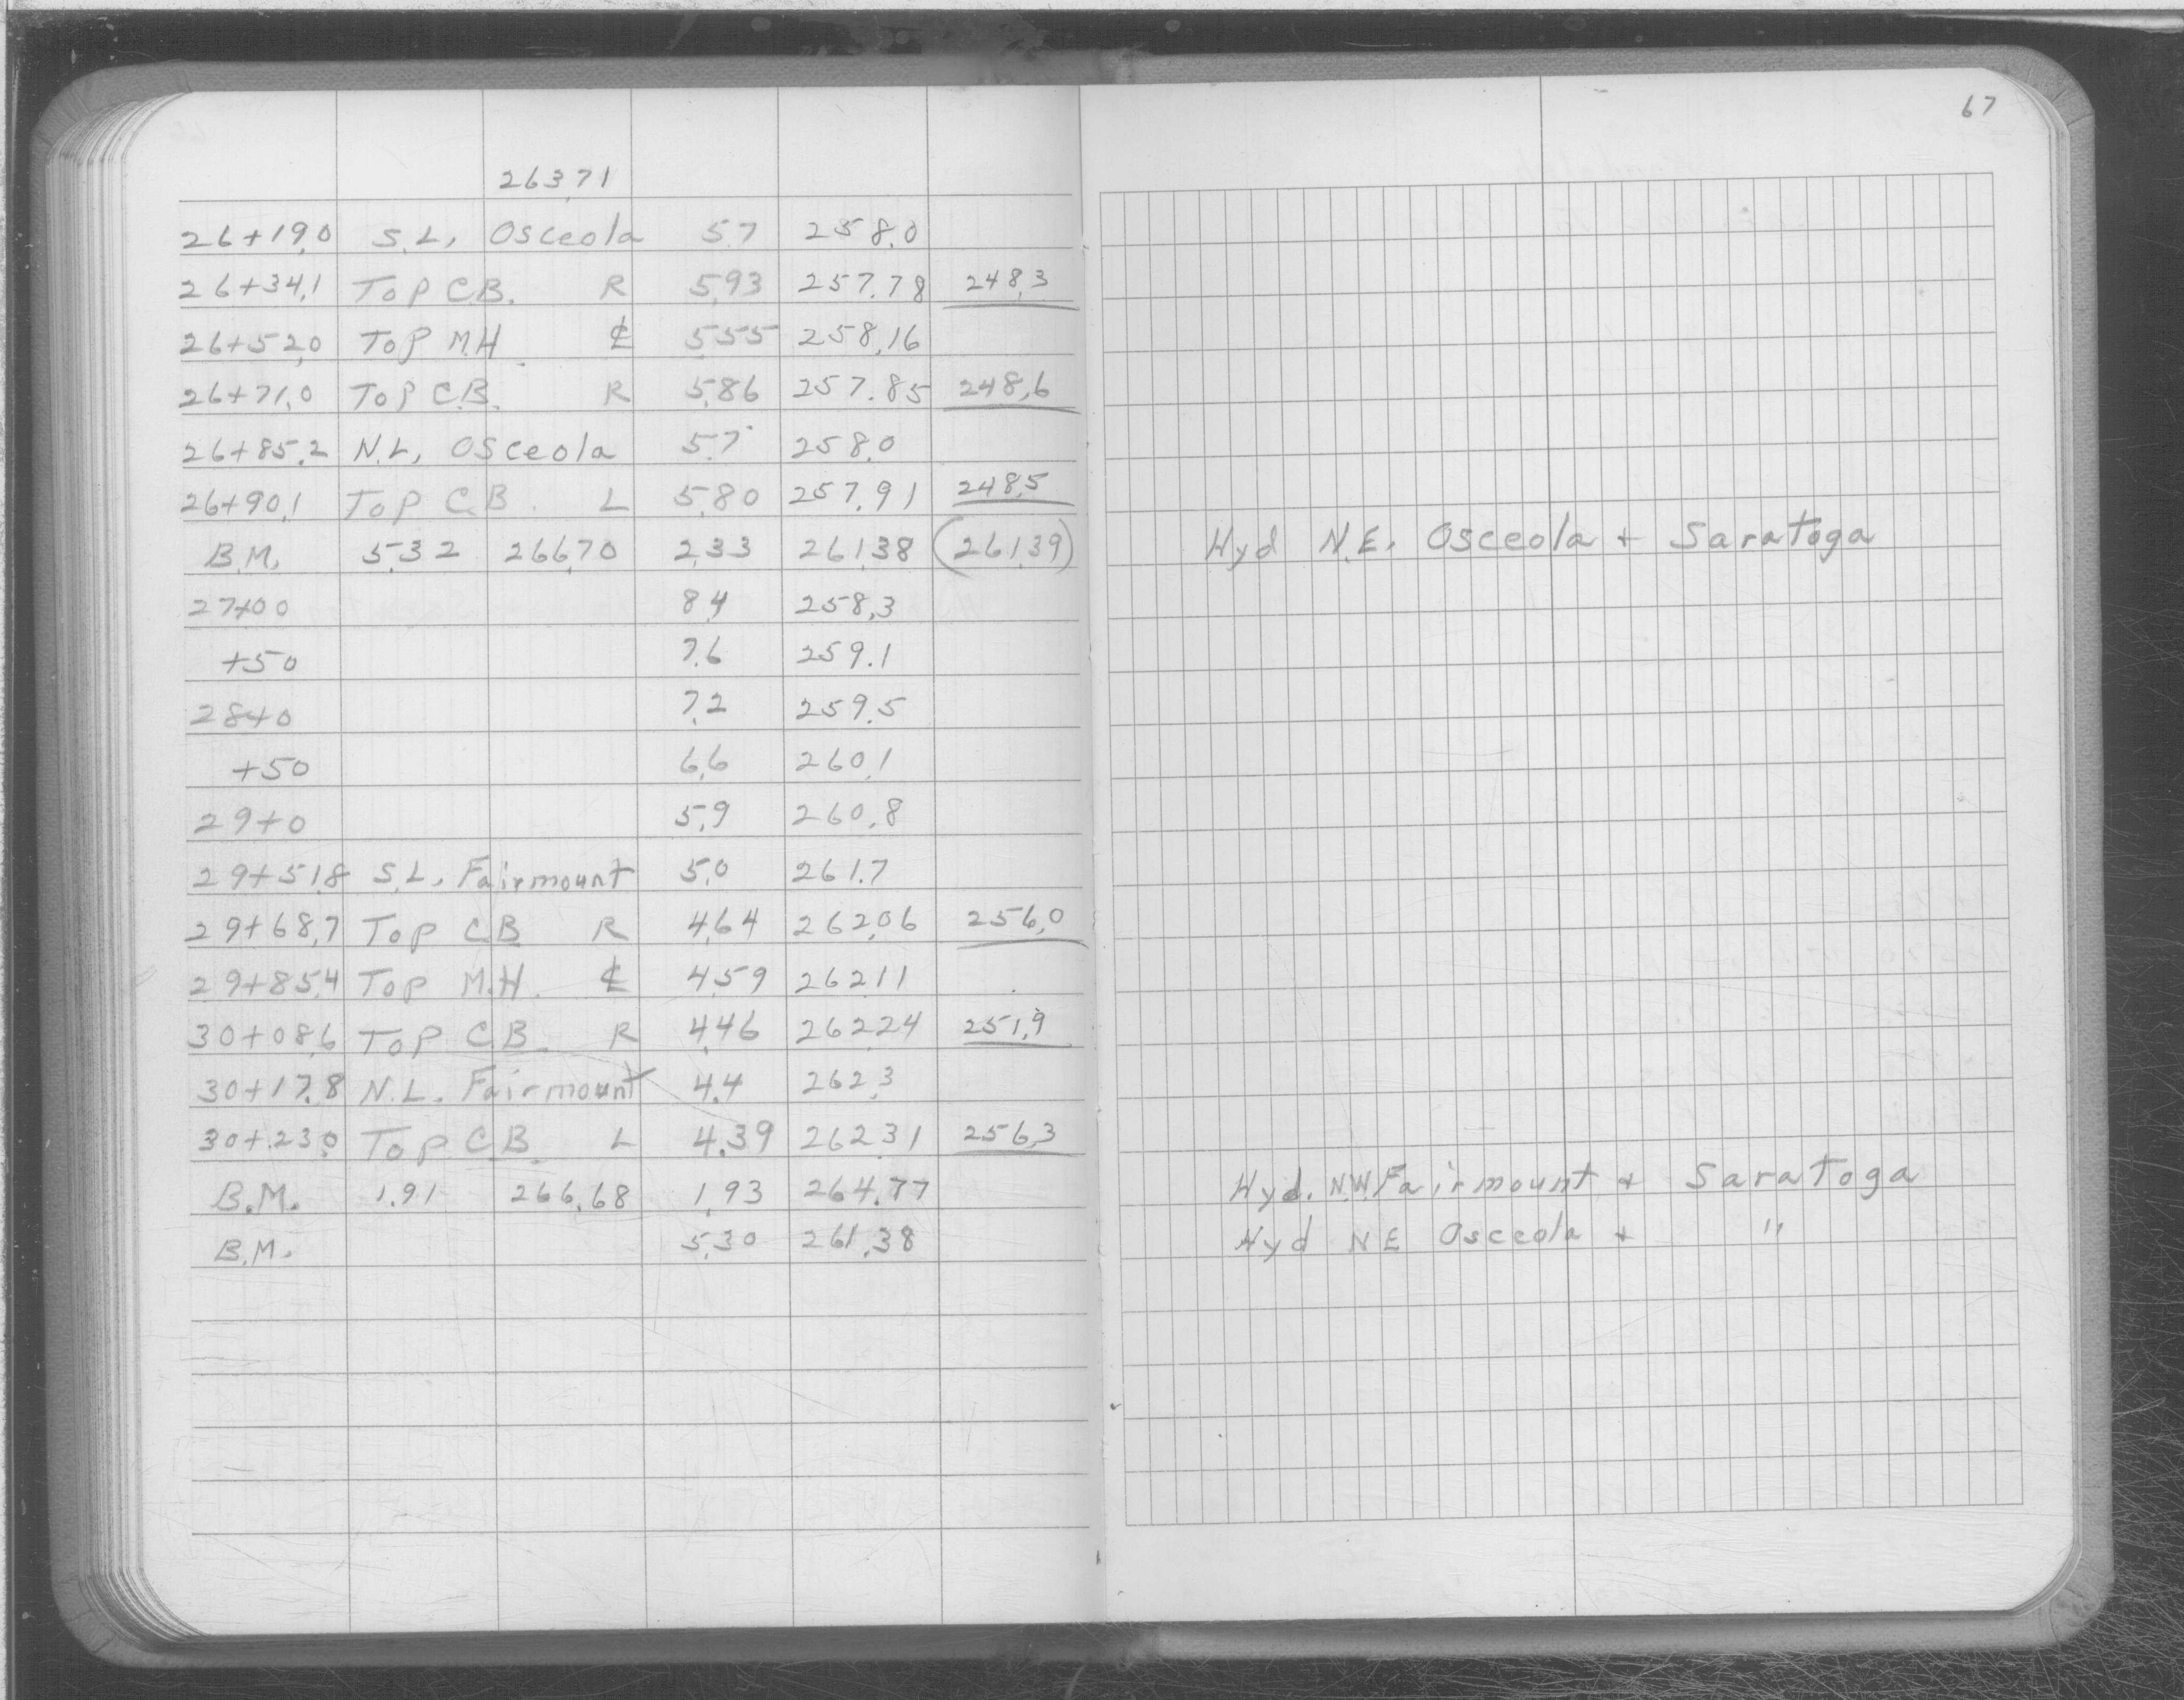 67
263.71
26+19.0 S.L. Osceola 5.7 258.0
26+34.1 Top C.B. R 5.93 257.78 248.3
26+52.0 Top M.H. ℄ 5.55 258.16
26+71.0 Top C.B. R 5.86 257.85 248.6
26+85.2 N.L. Osceola 5.7 258.0
26+90.1 Top C.B. L 5.80 257.91 248.5
B.M. 5.32 266.70 2.33 261.38 (261.39) Hyd N.E. Osceola + Saratoga
27+00 8.4 258.3
+50 7.6 259.1
28+0 7.2 259.5
+50 6.6 260.1
29+0 5.9 260.8
29+51.8 S.L. Fairmount 5.0 261.7
29+68.7 Top C.B. R 4.64 262.06 256.0
29+85.4 Top M.H. ℄ 4.59 262.11
30+08.6 Top C.B. R 4.46 262.24 251.9
30+17.8 N.L. Fairmount 4.4 262.3
30+23.0 Top C.B. L 4.39 262.31 256.3
B.M. 1.91 266.68 1.93 264.77 Hyd. N.W. Fairmount + Saratoga
B.M. 5.30 261.38 Hyd NE Osceola + "